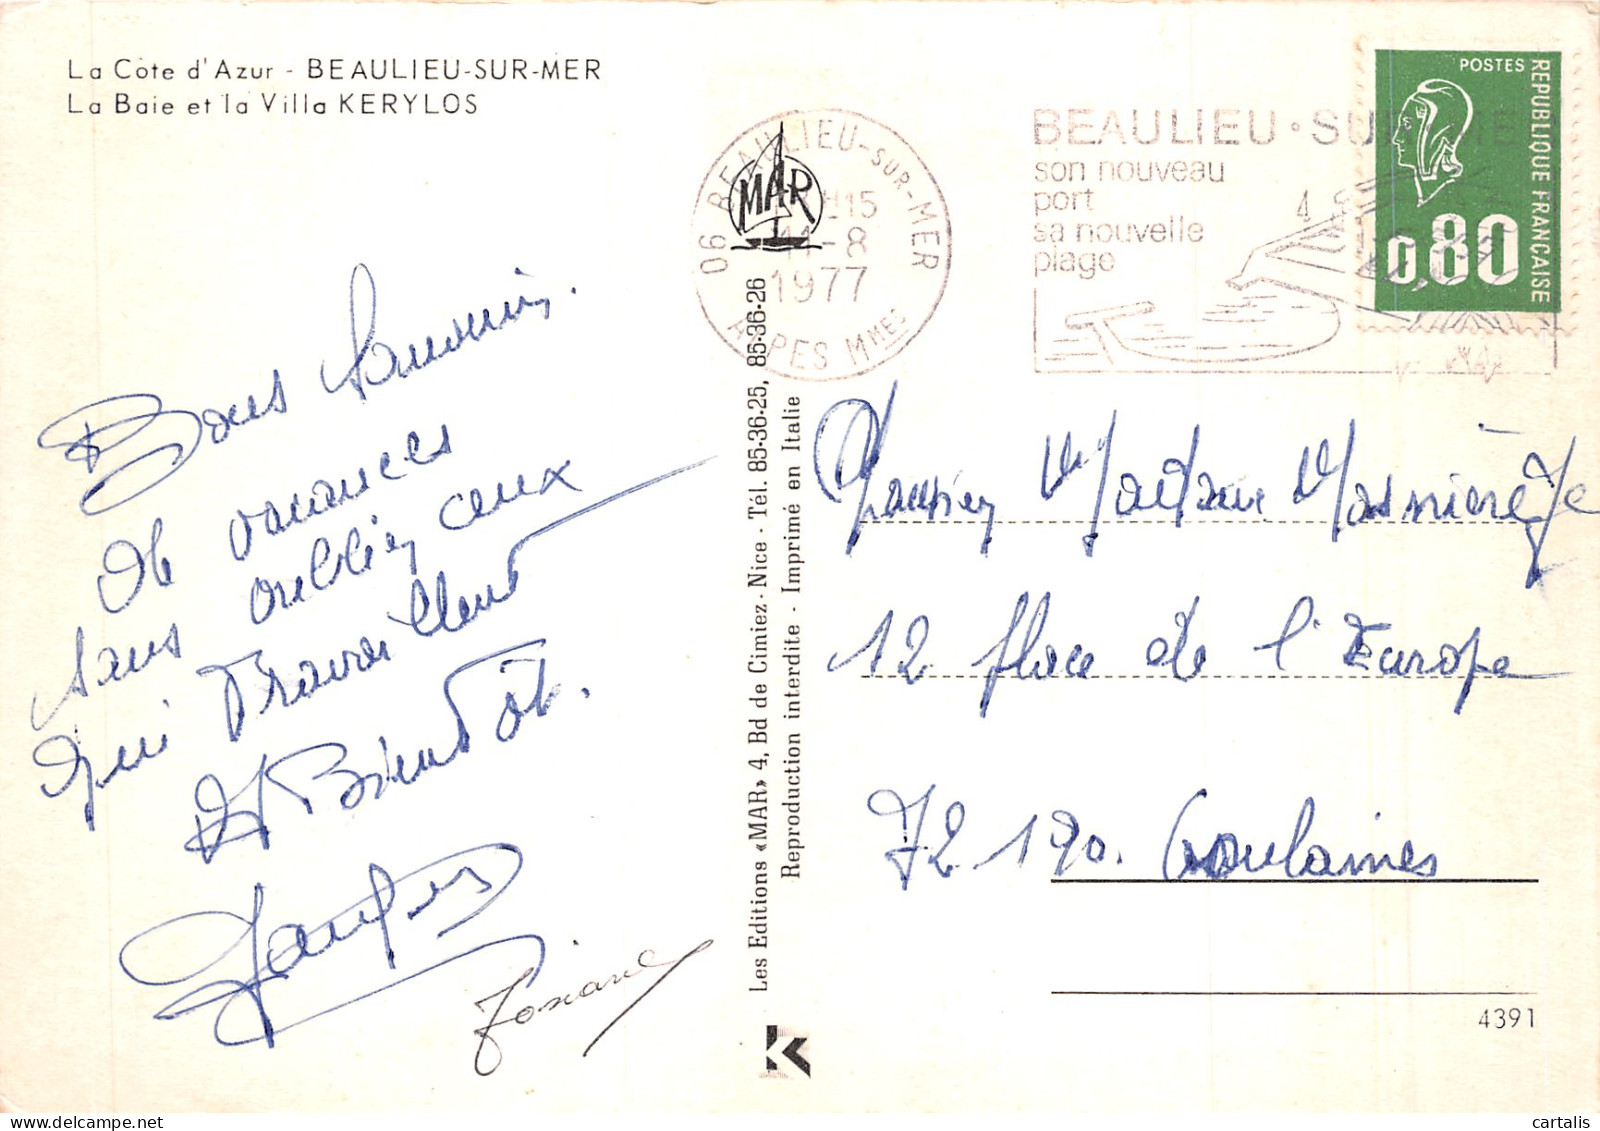 La Côte d'Azur - BEAULIEU-SUR-MER
La Baie et la Villa KERYLOS
Bons souvenirs.
de vacances
sans oublier ceux
qui travaillent
A Bientôt.
Josiane
Les Editions «MAR» 4, Bd de Cimiez - Nice - Tél. 85-36-25, 85-36-26
Reproduction interdite - Imprimé en Italie
MAR
06 BEAULIEU-SUR-MER
15
11-8
1977
ALPES MMES
BEAULIEU·SUR-MER
son nouveau
port
sa nouvelle
plage
POSTES
REPUBLIQUE FRANÇAISE
0,80
Monsieur Madame Masnière
12 place de l'Europe
72190. Coulaines
4391
cartalis